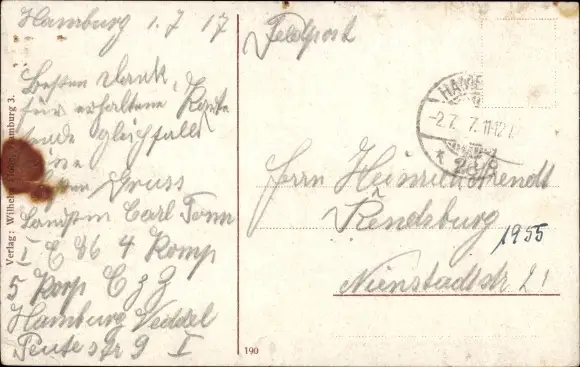 Hamburg 1.7 17
Besten Dank
für erhaltene Karte
sende gleichfalls
Gruss
Landstm Carl Tonn
I E 86 4 Komp
5 Korp
Hamburg Veddel
Peutestr 9 I
Verlag: Wilhelm Hamburg 3.
190
Feldpost
-2.7. 7.11-12
Herrn Heinrich
Rendsburg
1955
Nienstadtstr 21